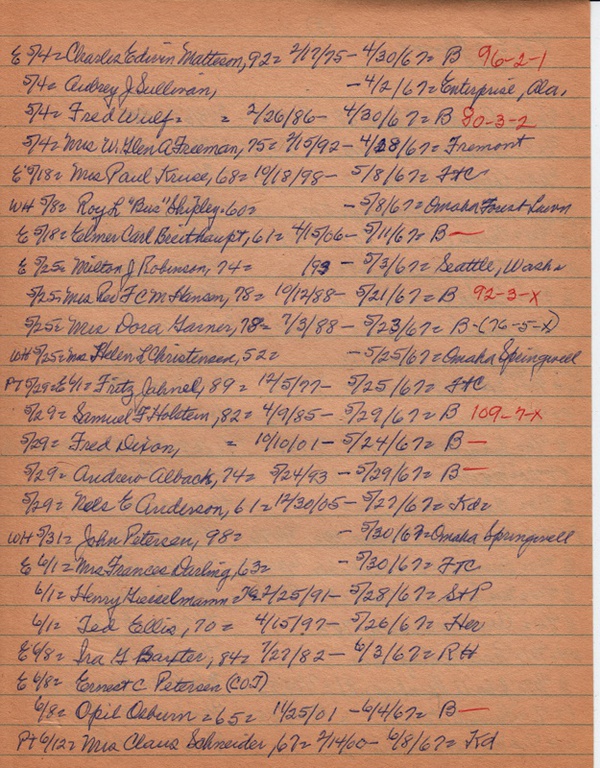 E 5/4= Charles Edwin Matteson, 92= 2/17/75- 4/30/67= B 96-2-1
5/4= Aubrey J Sullivan, -4/2/67= Enterprise, Ala,
5/4= Fred Wulf= = 2/26/86- 4/30/67= B 80-3-2
5/4= Mrs W. Glen A Freeman, 75= 2/15/92- 4/28/67= Fremont
E 5/18= Mrs Paul Kruse, 68= 10/18/98- 5/8/67= F+C
WH 5/8= Roy L "Bus" Shipley= 60= -5/8/67= Omaha Forest Lawn
E 5/18= Elmer Carl Breithaupt, 61= 4/15/06- 5/11/67= B —
E 5/25= Milton J Robinson, 74= 193 -5/3/67= Seattle, Wash=
5/25= Mrs Rev F C M Hansen, 78= 10/12/88- 5/21/67= B 92-3-X
5/25= Mrs Dora Garner, 78= 7/3/88- 5/23/67= B-(76-5-X)
WH 5/25= Mrs Helen L Christensen, 52= -5/25/67= Omaha Springwell
PT 5/29= E 6/1= Fritz Jahnel, 89= 12/5/77- 5/25/67= F+C
5/29= Samuel F Holstein, 82= 4/9/85- 5/29/67= B 109-7-X
5/29= Fred Dixon, = 10/10/01- 5/24/67= B —
5/29= Andrew Alback, 74= 5/24/93 -5/29/67= B —
5/29= Nels E Anderson, 61= 12/30/05- 5/27/67= Kd=
WH 5/31= John Petersen, 98= -5/30/67= Omaha Springwell
E 6/1= Mrs Frances Darling, 63= -5/30/67= F+C
6/1= Henry Giesselmann= 76= 2/25/91- 5/28/67= S+P
6/1= Ted Ellis, 70= 4/15/97- 5/26/67= Her
E 6/8= Ira G Baxter, 84= 7/27/82- 6/3/67= RH
E 6/8= Ernest C Petersen (COJ)
6/8= Opil Osburn= 65= 11/25/01 -6/4/67= B —
PT 6/12= Mrs Claus Schneider, 67= 2/14/00- 6/8/67= Kd